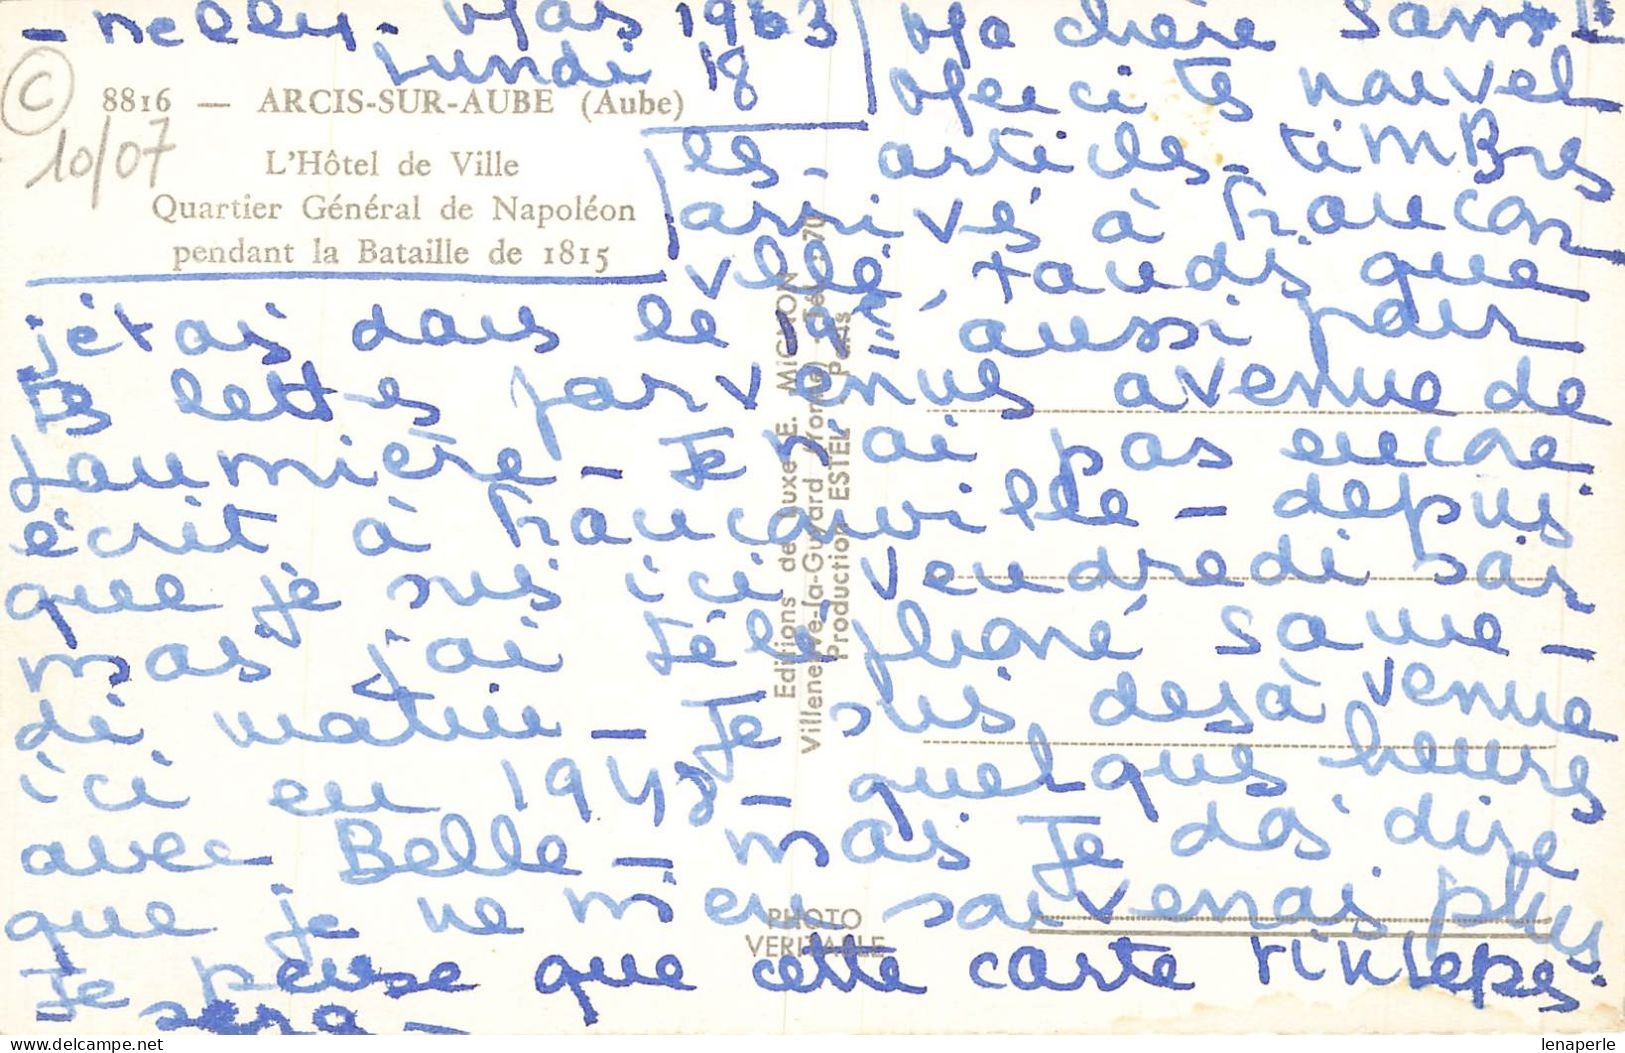 - Nelly - Mas 1963
Lundi 18
Ma chère
Merci tes nouvel
les - articles - timBres
arrivés à Francon
ville, tandis que
j'étais dans le aussi pour
tes lettres parvenues avenue de
Laumière - Je n'ai pas encore
écrit à Franconville - depuis
que je suis ici, vendredi soir
mais j'ai téléphoné same-
di matin - Je suis dejà venue
ici en 1948 - quelques heures
avec Belle - mais je dois dire
que je ne m'en souvenais plus
Je pense que cette carte
sera -
©
10/07
8816 — ARCIS-SUR-AUBE (Aube)
L'Hôtel de Ville
Quartier Général de Napoléon
pendant la Bataille de 1815
Editions de Luxe E. MIGNON
Villeneuve-la-Guyard (Yonne) - Tél. : 70
Production ESTEL - Paris
PHOTO
VERITABLE
lenaperle